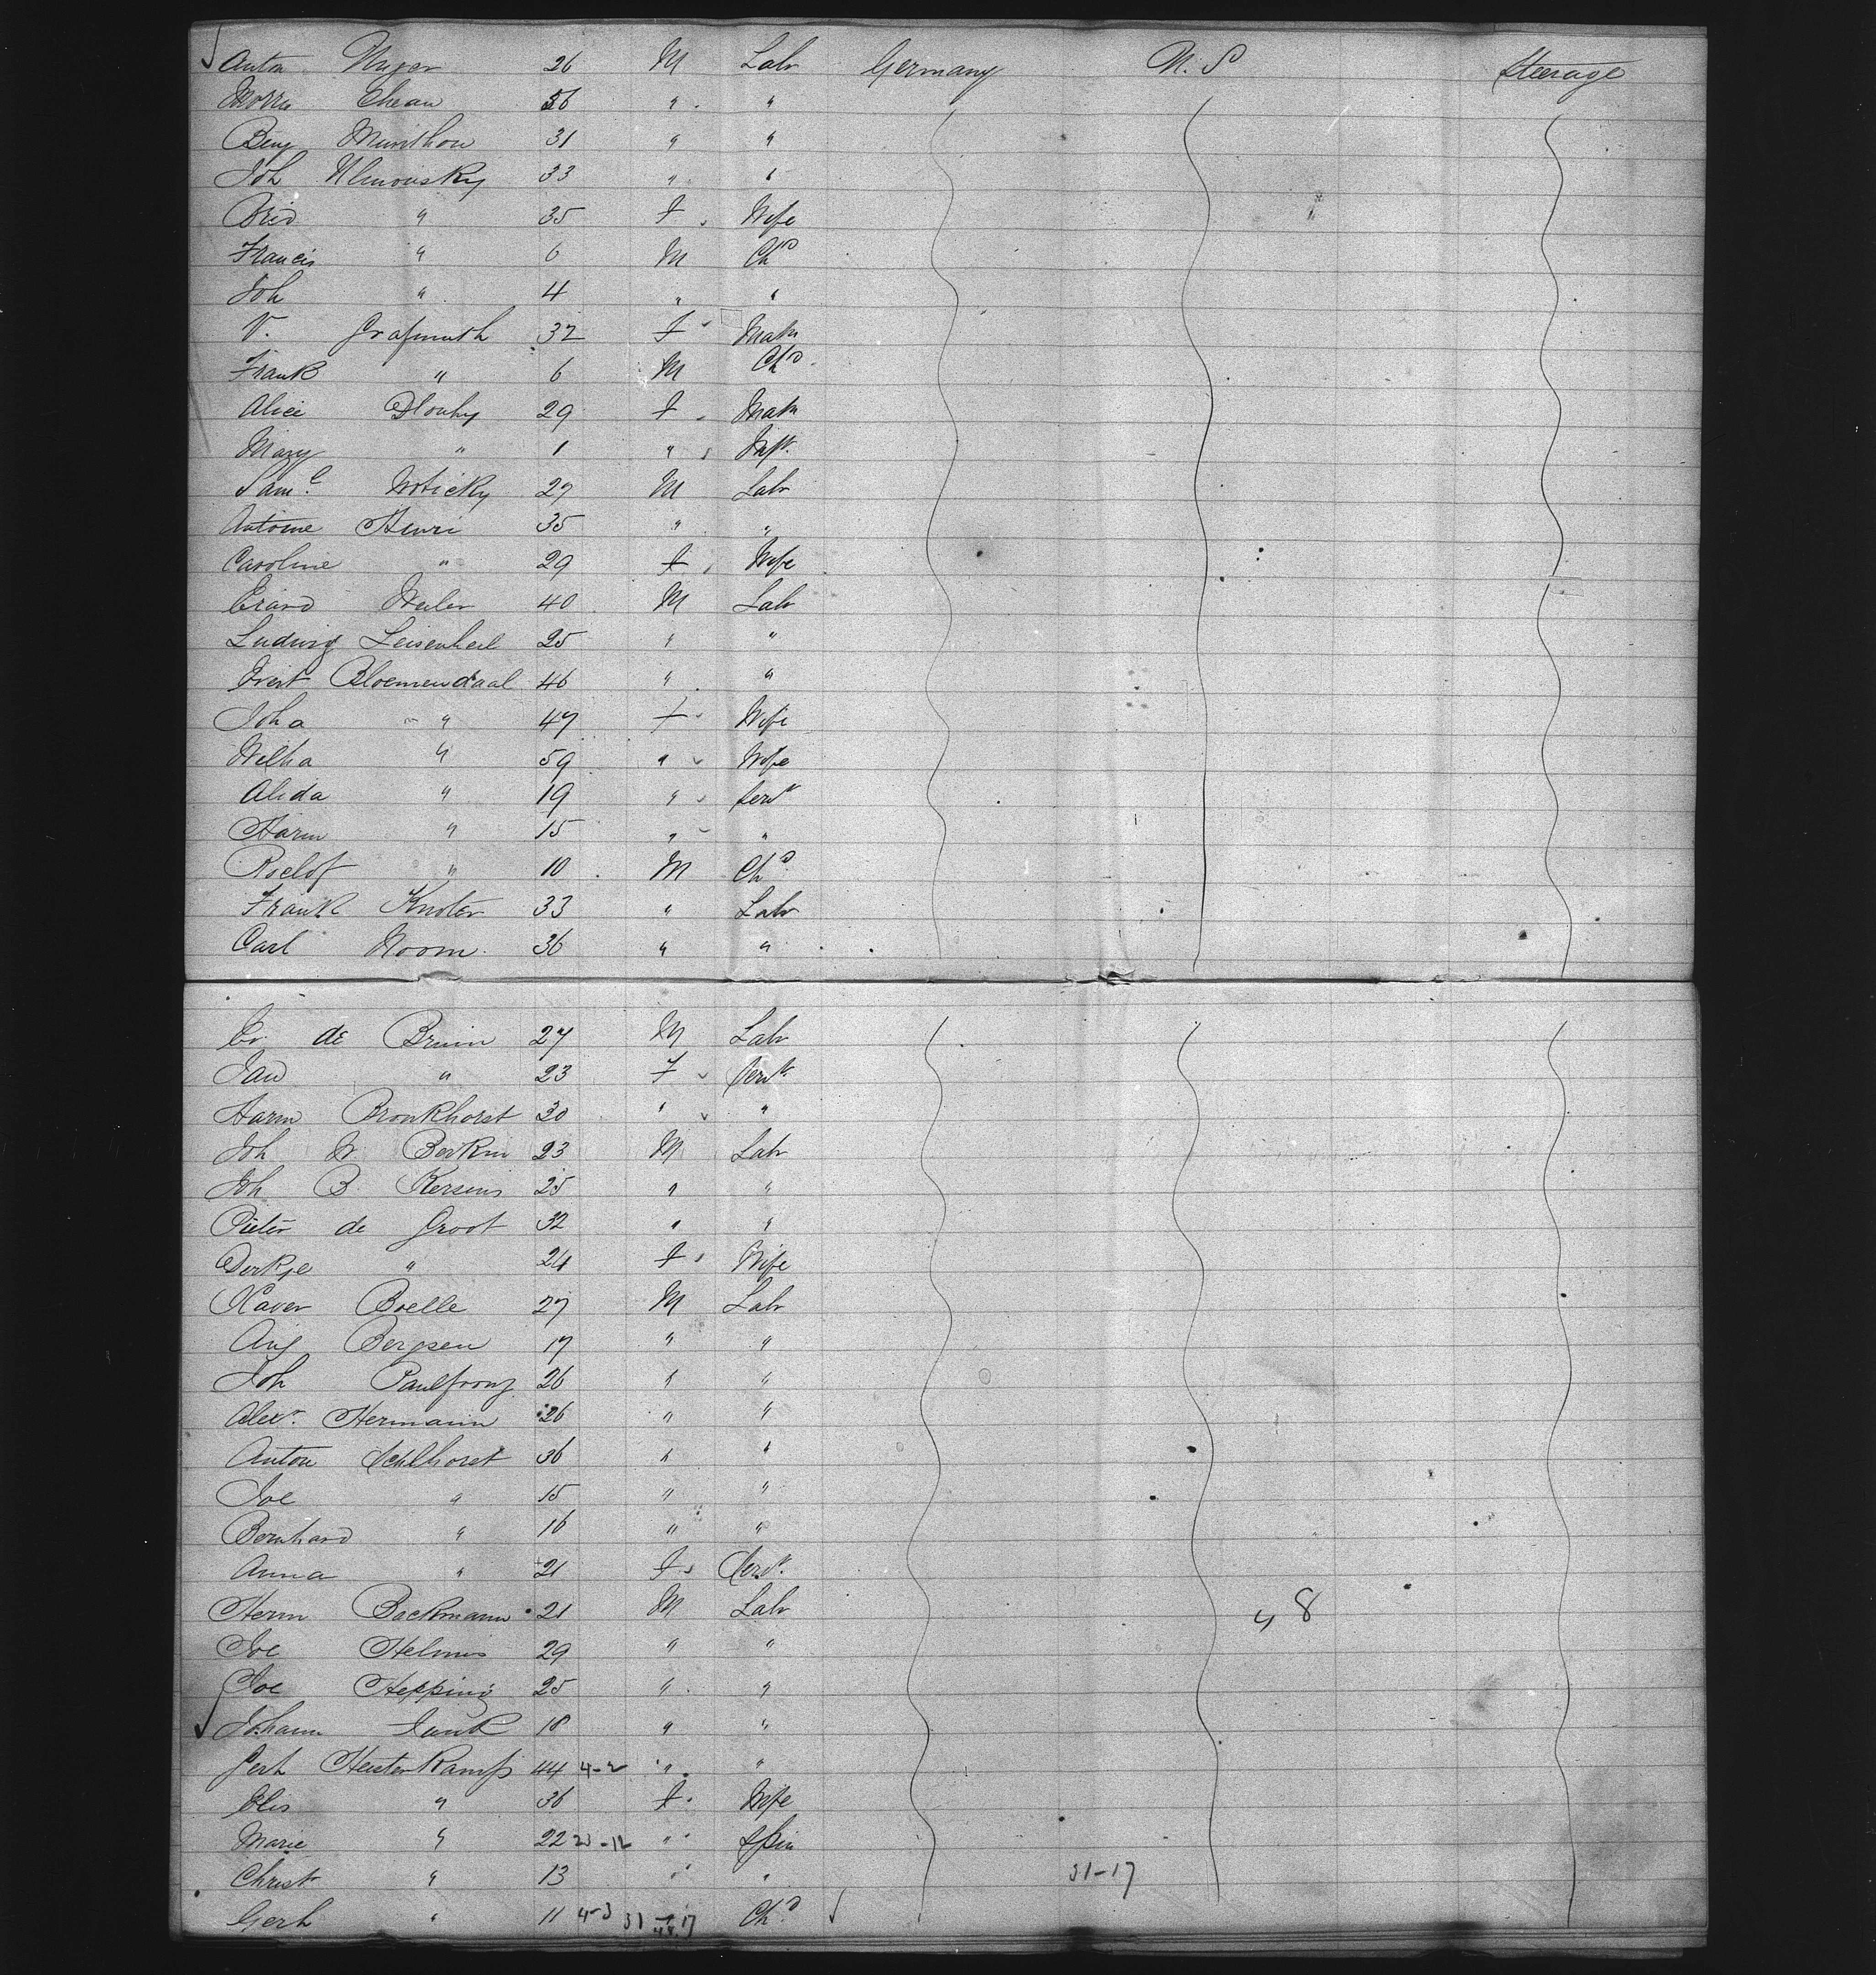 Anton Unger 26 M Labr Germany U.S Steerage
Morris Chean 36 " "
Benj Munthou 31 " "
Joh Ulmousky 33 " "
Brid " 35 F Wife
Francis " 6 M Chd
Joh " 4 " "
V. Grafmuth 32 F Matn
Frank " 6 M Chd
Alice Dlouhy 29 F Matn
Mary " 1 " Inft.
Saml. Woticky 27 M Labr
Antoine Henri 35 " "
Caroline " 29 F Wife
Erard Weiler 40 M Labr
Ludwig Leisenheil 25 " "
Evert Bloemendaal 46 " "
Joha " 47 F Wife
Welha " 59 " Wife
Alida " 19 " Servt
Harm " 15 " "
Roelof " 10 M Chd
Frank Knoter 33 " Labr
Carl Noom 36 " "
Cr. de Bruin 27 M Labr
Jan " 23 F Servt
Harm Bronkhorst 20 " "
Joh W. Berkin 23 M Labr
Joh B. Kersens 25 " "
Pieter de Groot 32 " "
Derkje " 24 F Wife
Xaver Boelle 27 M Labr
Aug Bergsen 17 " "
Joh Paulfranz 26 " "
Alexr. Hermann 26 " "
Anton Schlhorst 36 " "
Joe " 15 " "
Bernhard " 16 " "
Anna " 21 F Servt.
Herm Backmann 21 M Labr 48
Joe Helmes 29 " "
Joe Hepping 25 " "
Johann Junk 18 " "
Gerh Heisterkamp 44 4-2 " "
Elis " 36 F Wife
Marie " 22 20-12 " Spin
Christ " 13 " " 31-17
Gerh " 11 4-3 31-17 48 Chd